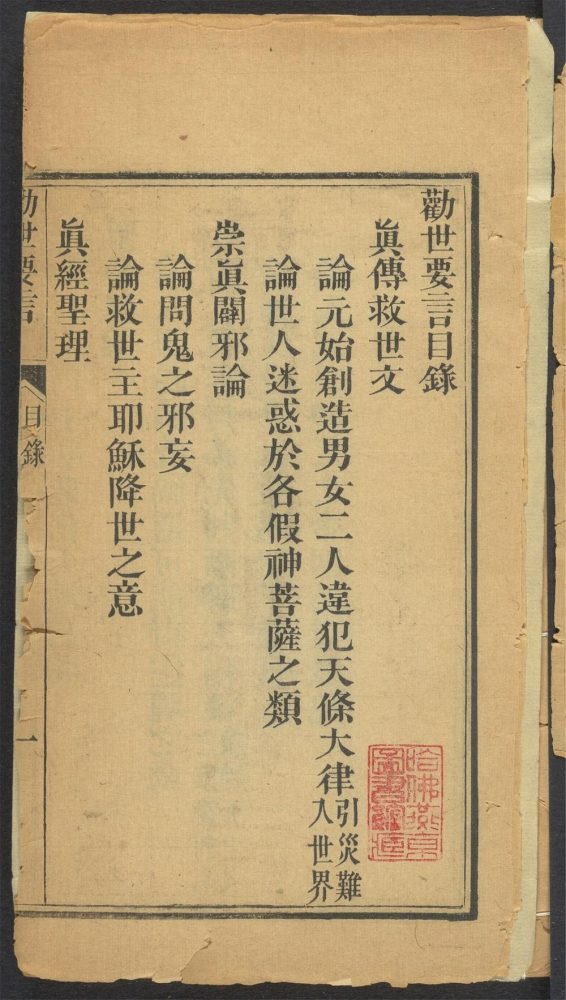 勸世要言目錄
眞傳救世文
論元始創造男女二人違犯天條大律引災難
入世界
論世人迷惑於各假神菩薩之類
崇眞闢邪論
論問鬼之邪妄
論救世主耶穌降世之意
眞經聖理
勸世要言
目錄
一
哈佛燕京
圖書館藏